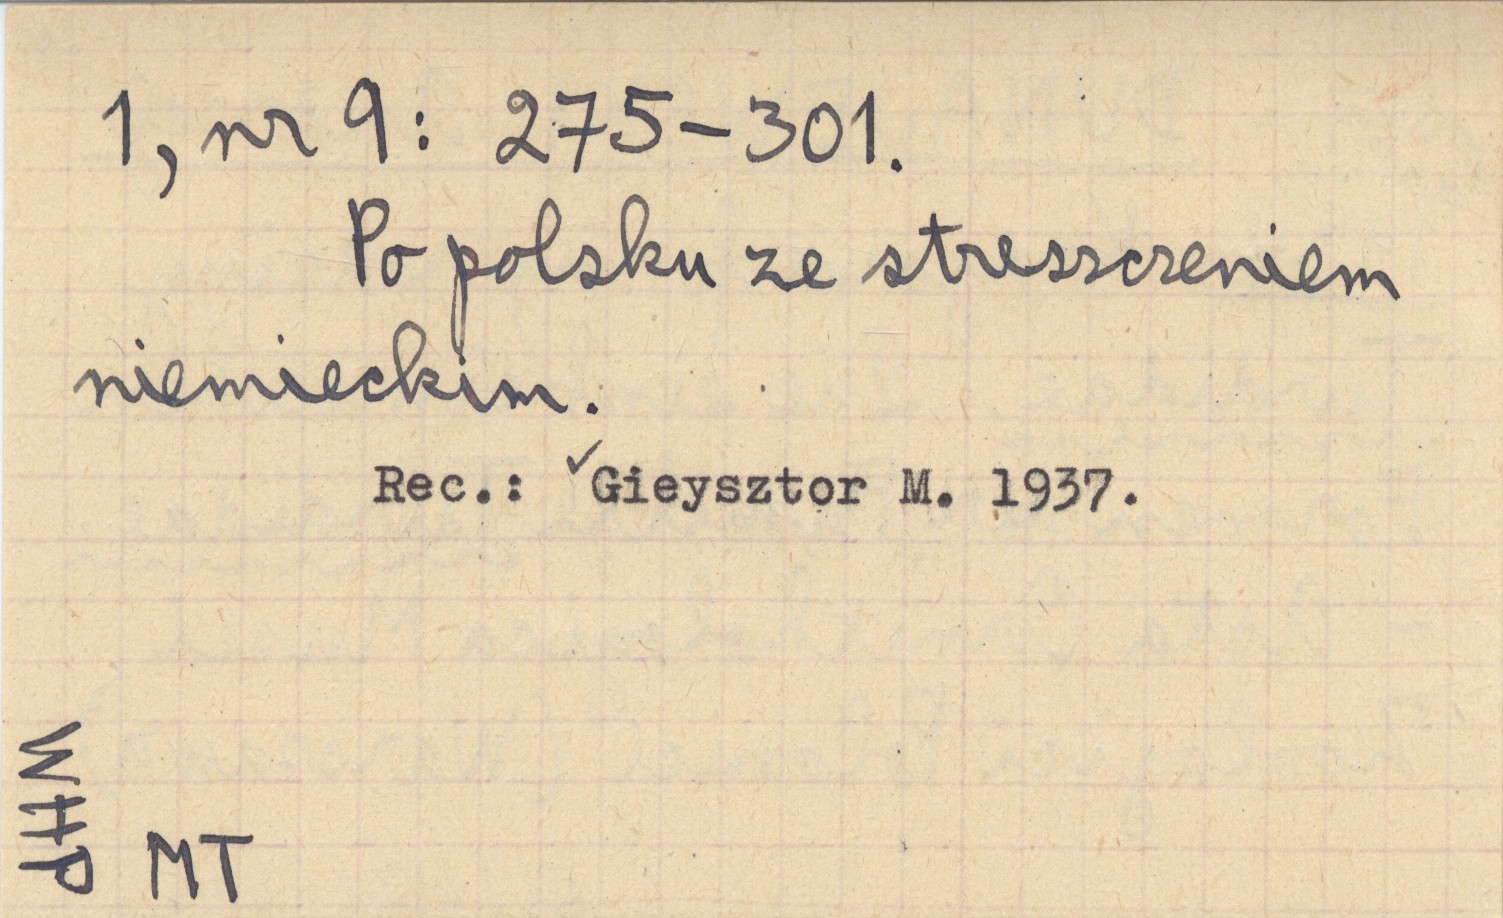 1, nr 9: 275-301.
Po polsku ze streszczeniem
niemieckim.
Rec.: ✓Gieysztor M. 1937.
WHP
MT